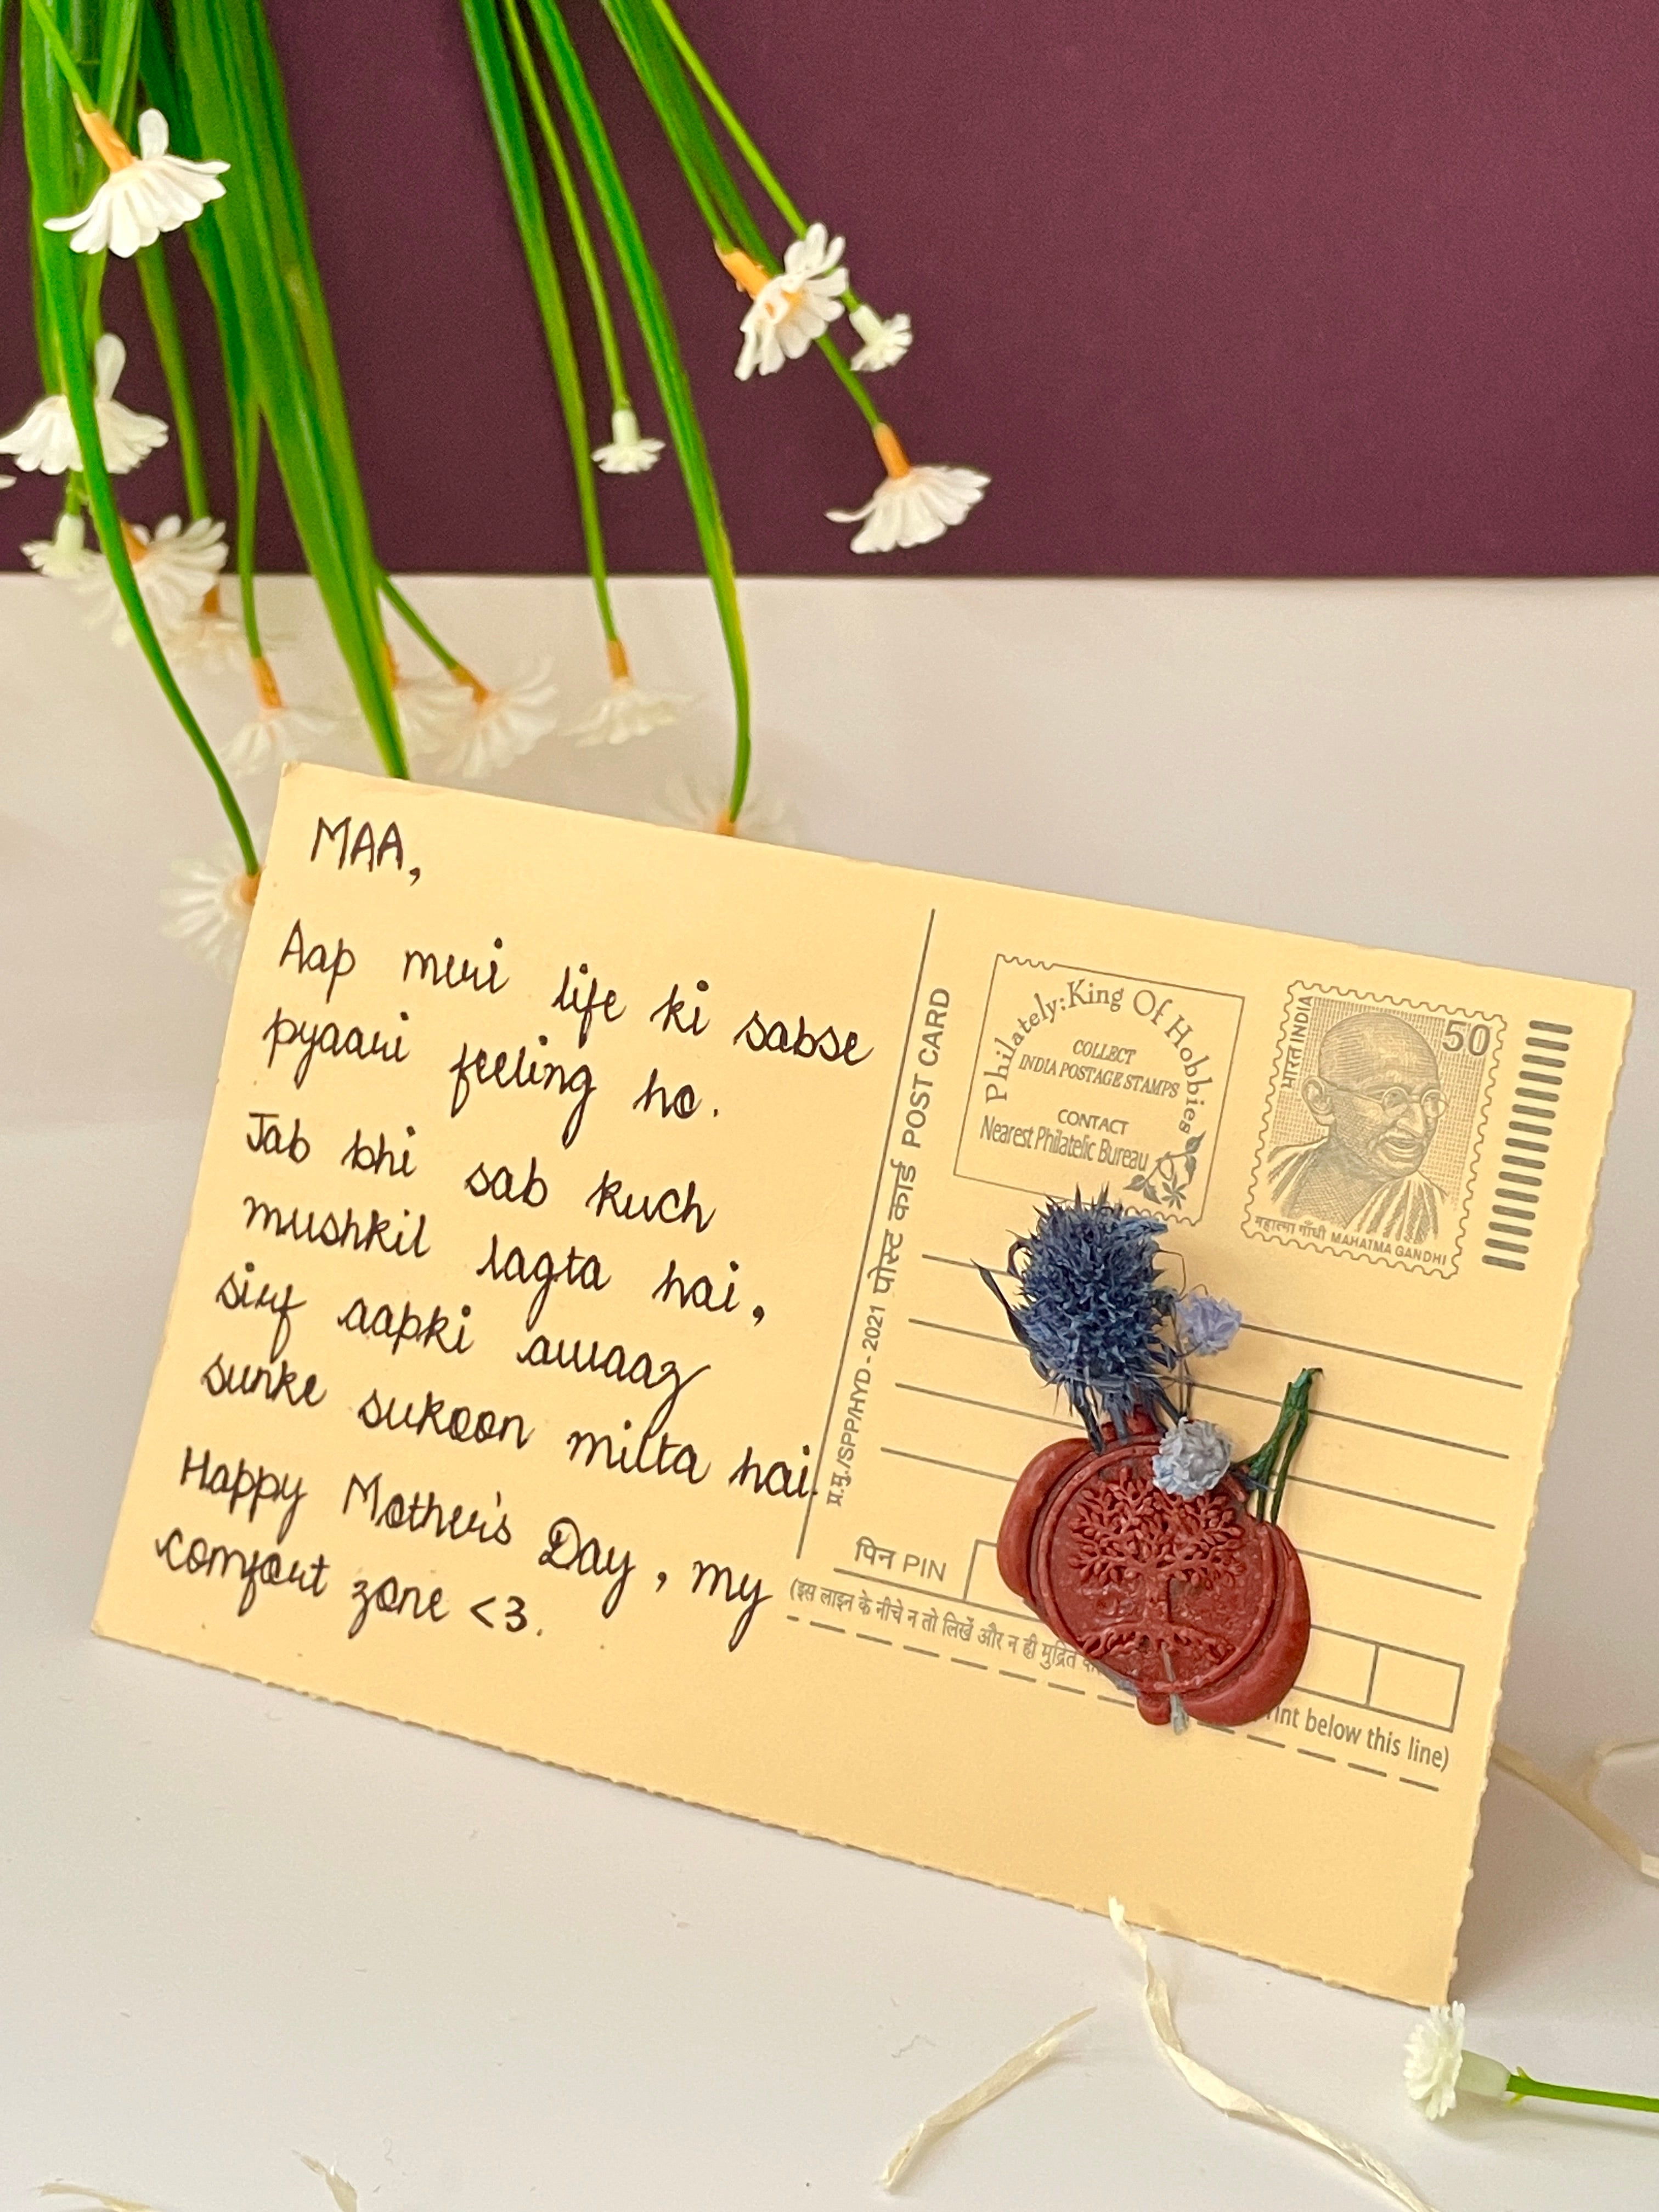 MAA,
Aap meri life ki sabse
pyaari feeling ho.
Jab bhi sab kuch
mushkil lagta hai,
sirf aapki awaaz
sunke sukoon milta hai.
Happy Mother's Day, my
comfort zone <3.
प्र.मु./SPP/HYD - 2021 पोस्ट कार्ड POST CARD
Philately: King Of Hobbies
COLLECT
INDIA POSTAGE STAMPS
CONTACT
Nearest Philatelic Bureau
भारत INDIA
50
महात्मा गाँधी MAHATMA GANDHI
पिन PIN
(इस लाइन के नीचे न तो लिखें और न ही मुद्रित
below this line)